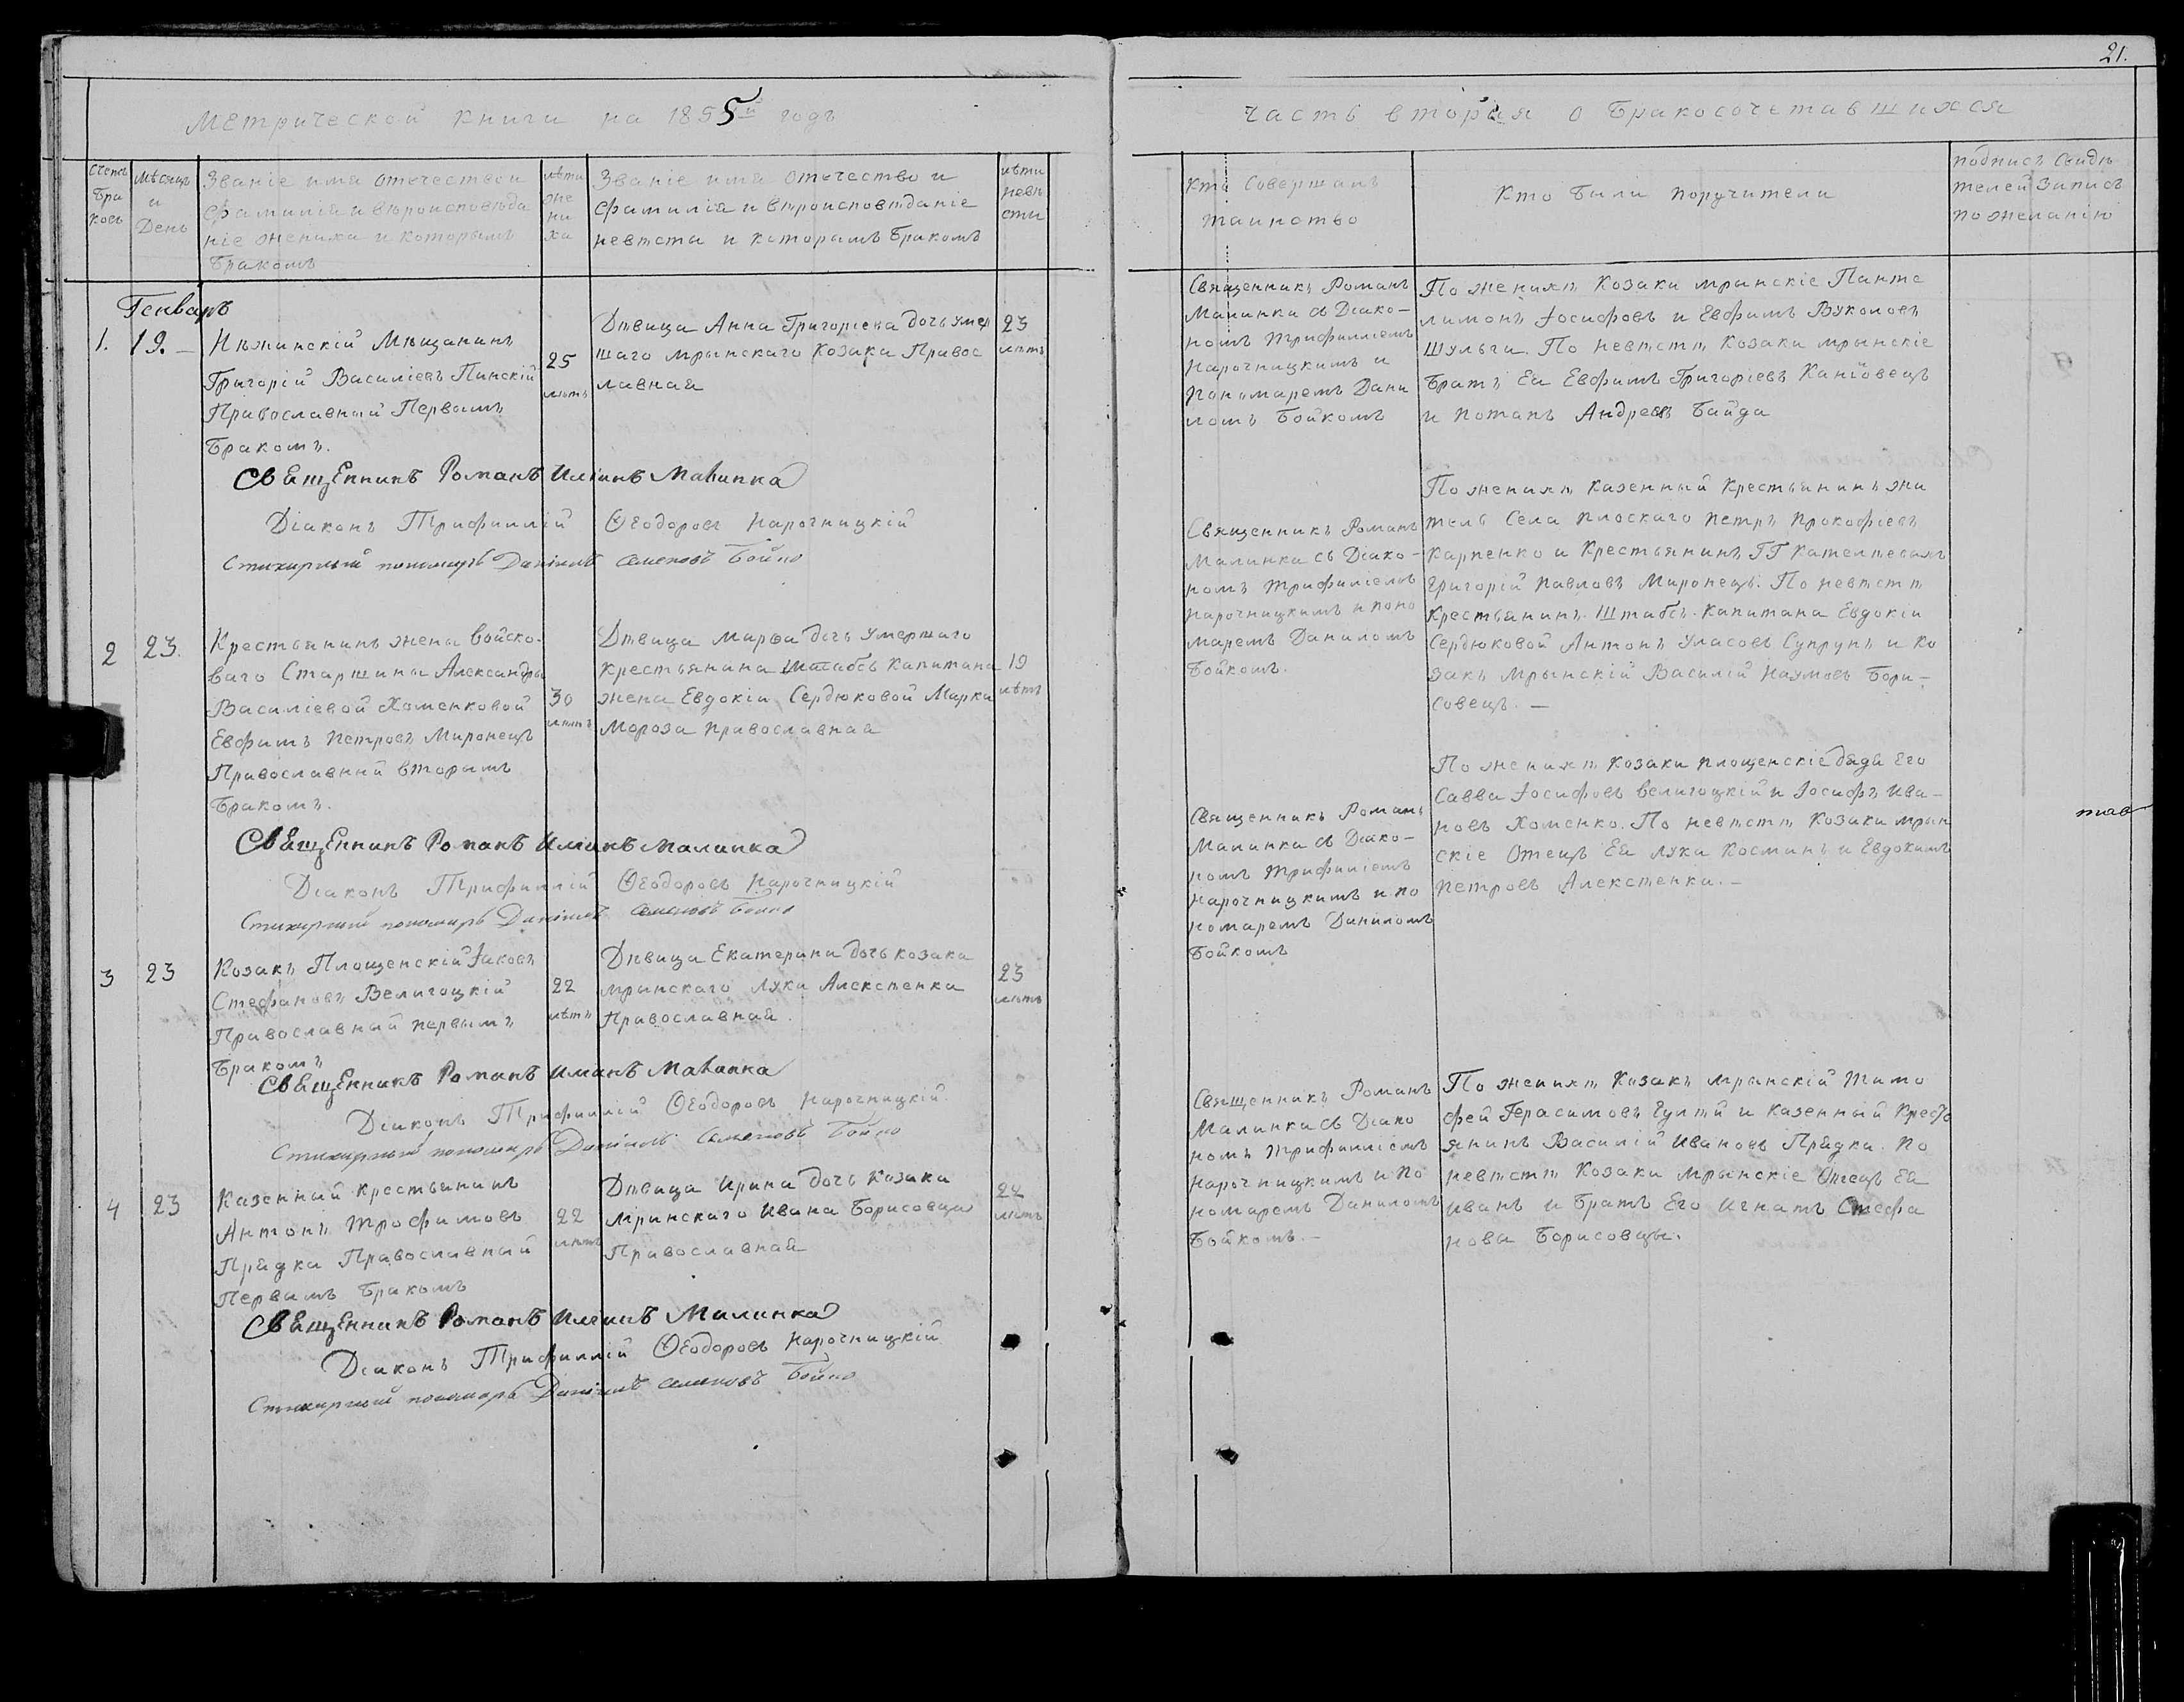 21.
Метрической книги на 1855й годъ
Часть вторая о Бракосочетавшихся
Счетъ
Бра
ковъ
Мѣсяцъ
и
День
Званіе имя отечество и
фамилія и вѣроисповѣда
ніе жениха и которымъ
Бракомъ
лѣти
же
ни
ха
Званіе имя отечество и
фамилія и вѣроисповѣданіе
невѣсты и которымъ Бракомъ
лѣти
невѣ
сти
Кто Совершалъ
таинство
Кто были поручители
подпись Свидѣ
телей Запись
по желанію
Генварь
1.
19.
Нѣжинскій Мѣщанинъ
Григорій Василіевъ Пинскій
Православный Первымъ
Бракомъ.
25
лѣтъ
Дѣвица Анна Григоріева дочь умер
шаго мрынскаго Козака Правос
лавная
23
лѣтъ
Священникъ Романъ
Малинка съ Діако-
номъ Трифилліемъ
Нарочницкимъ и
Пономаремъ Дани
ломъ Бойкомъ
По женихѣ Козаки мрынскіе Панте
лимонъ Іосифовъ и Евфимъ Вуколовъ
Шульги. По невѣстѣ Козаки мрынскіе
Братъ Ея Евфимъ Григоріевъ Каніовецъ
и Потапъ Андреевъ Байда
Священникъ Романъ Иліинъ Малинка
Діаконъ Трифиллій Ѳеодоровъ Нарочницкій
Стихарный пономарь Даніилъ Семеновъ Бойко
2
23.
Крестьянинъ жены Войско-
ваго Старшины Александры
Василіевой Хоменковой
Евфимъ Петровъ Миронецъ
Православный вторымъ
Бракомъ.
30
лѣтъ
Дѣвица Марѳа дочь умершаго
крестьянина штабсъ капитана
жена Евдокіи Сердюковой Марка
Мороза православная
19
лѣтъ
Священникъ Романъ
Малинка съ Діако-
номъ Трифиліемъ
Нарочницкимъ и поно
маремъ Даниломъ
Бойкомъ.
По женихѣ Казенный Крестьянинъ жи
тель Села плоскаго Петръ Прокофіевъ
Карпенко и Крестьянинъ ГГ
Григорій Павловъ Миронецъ. По невѣстѣ
Крестьянинъ Штабсъ-Капитана Евдокіи
Сердюковой Антонъ Уласовъ Супрунъ и Ко
закъ Мрынскій Василій Наумовъ Бори-
совецъ.
Священникъ Романъ Илинъ Малинка
Діаконъ Трифиллій Ѳеодоровъ Нарочницкій
Стихарный пономарь Даніилъ Семеновъ Бойко
3
23
Козакъ Площенскій Іаковъ
Стефановъ Велигоцкій
Православный первымъ
Бракомъ
22
лѣтъ
Дѣвица Екатерина дочь козака
мрынскаго Луки Алексѣенка
Православная.
23
лѣтъ
Священникъ Романъ
Малинка съ Діако-
номъ Трифиліемъ
Нарочницкимъ и по
номаремъ Даниломъ
Бойкомъ
По женихѣ Козаки площенскіе дядя Его
Савва Іосифовъ Велигоцкій и Іосифъ Ива-
новъ Хоменко. По невѣстѣ Козаки мрын
скіе Отецъ Ея Лука Косминъ и Евдокимъ
Петровъ Алексѣенки.
Священникъ Романъ Илинъ Малинка
Діаконъ Трифиллій Ѳеодоровъ Нарочницкій
Стихарный пономарь Даніилъ Семеновъ Бойко
4
23
Казенный крестьянинъ
Антонъ Трофимовъ
Прядка Православный
Первымъ Бракомъ
22
лѣтъ
Дѣвица Ирина дочь Козака
Мринскаго Ивана Борисовца
Православная
22
лѣтъ
Священникъ Романъ
Малинка съ Діако
номъ Трифилліемъ
Нарочницкимъ и по
номаремъ Даниломъ
Бойкомъ.
По женихѣ Козакъ Мрынскій Тимо
фей Герасимовъ и Казенный Крестъ
янинъ Василій Ивановъ Прядка. По
невѣстѣ Козаки Мрынскіе Отецъ Ея
Иванъ и Братъ Его Игнатъ Стефа
нови Борисовцы.
Священникъ Романъ Илинъ Малинка
Діаконъ Трифиллій Ѳеодоровъ Нарочницкій
Стихарный пономарь Даніилъ Семеновъ Бойко